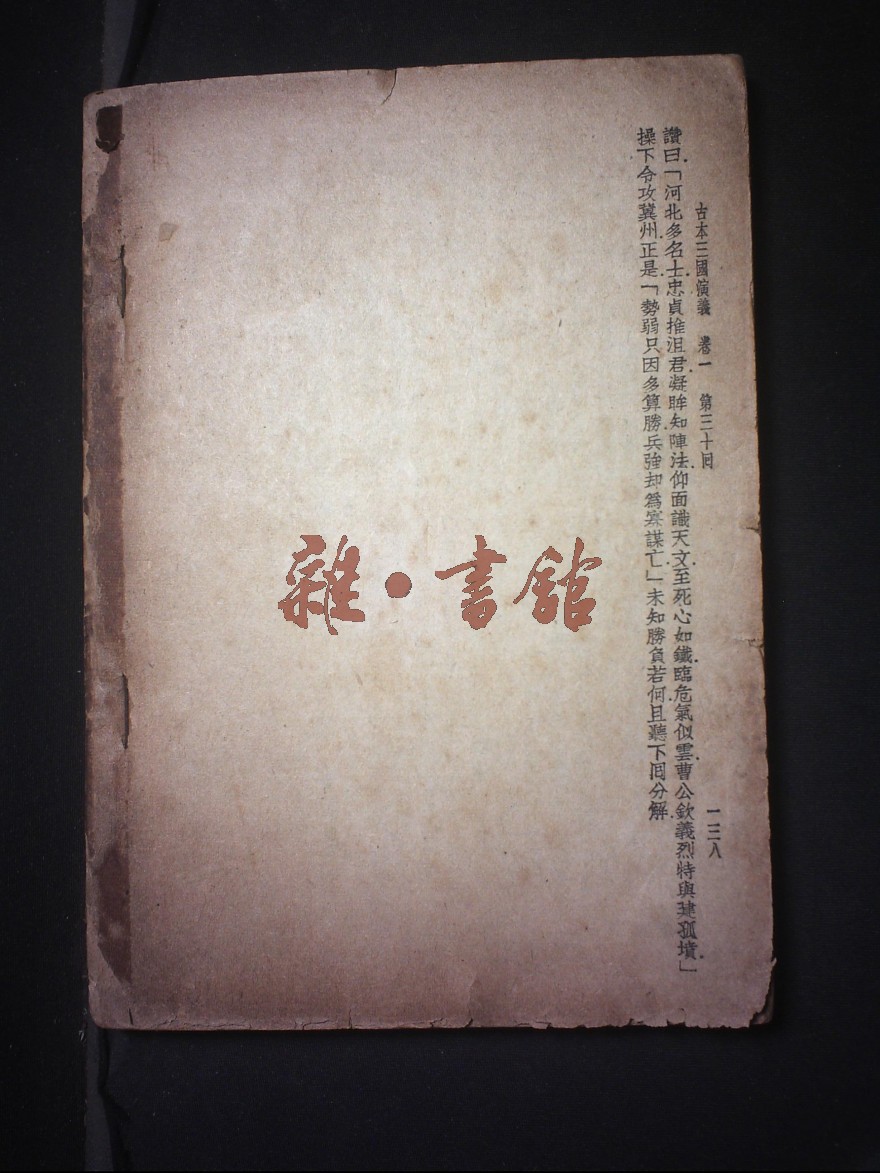 古本三國演義 卷一 第三十回 一三八
讚曰「河北多名士忠貞推沮君凝眸知陣法仰面識天文至死心如鐵臨危氣似雲曹公欽義烈特與建孤墳」
操下令攻冀州正是「勢弱只因多算勝兵強却爲寡謀亡」未知勝負若何且聽下回分解
雜·書館